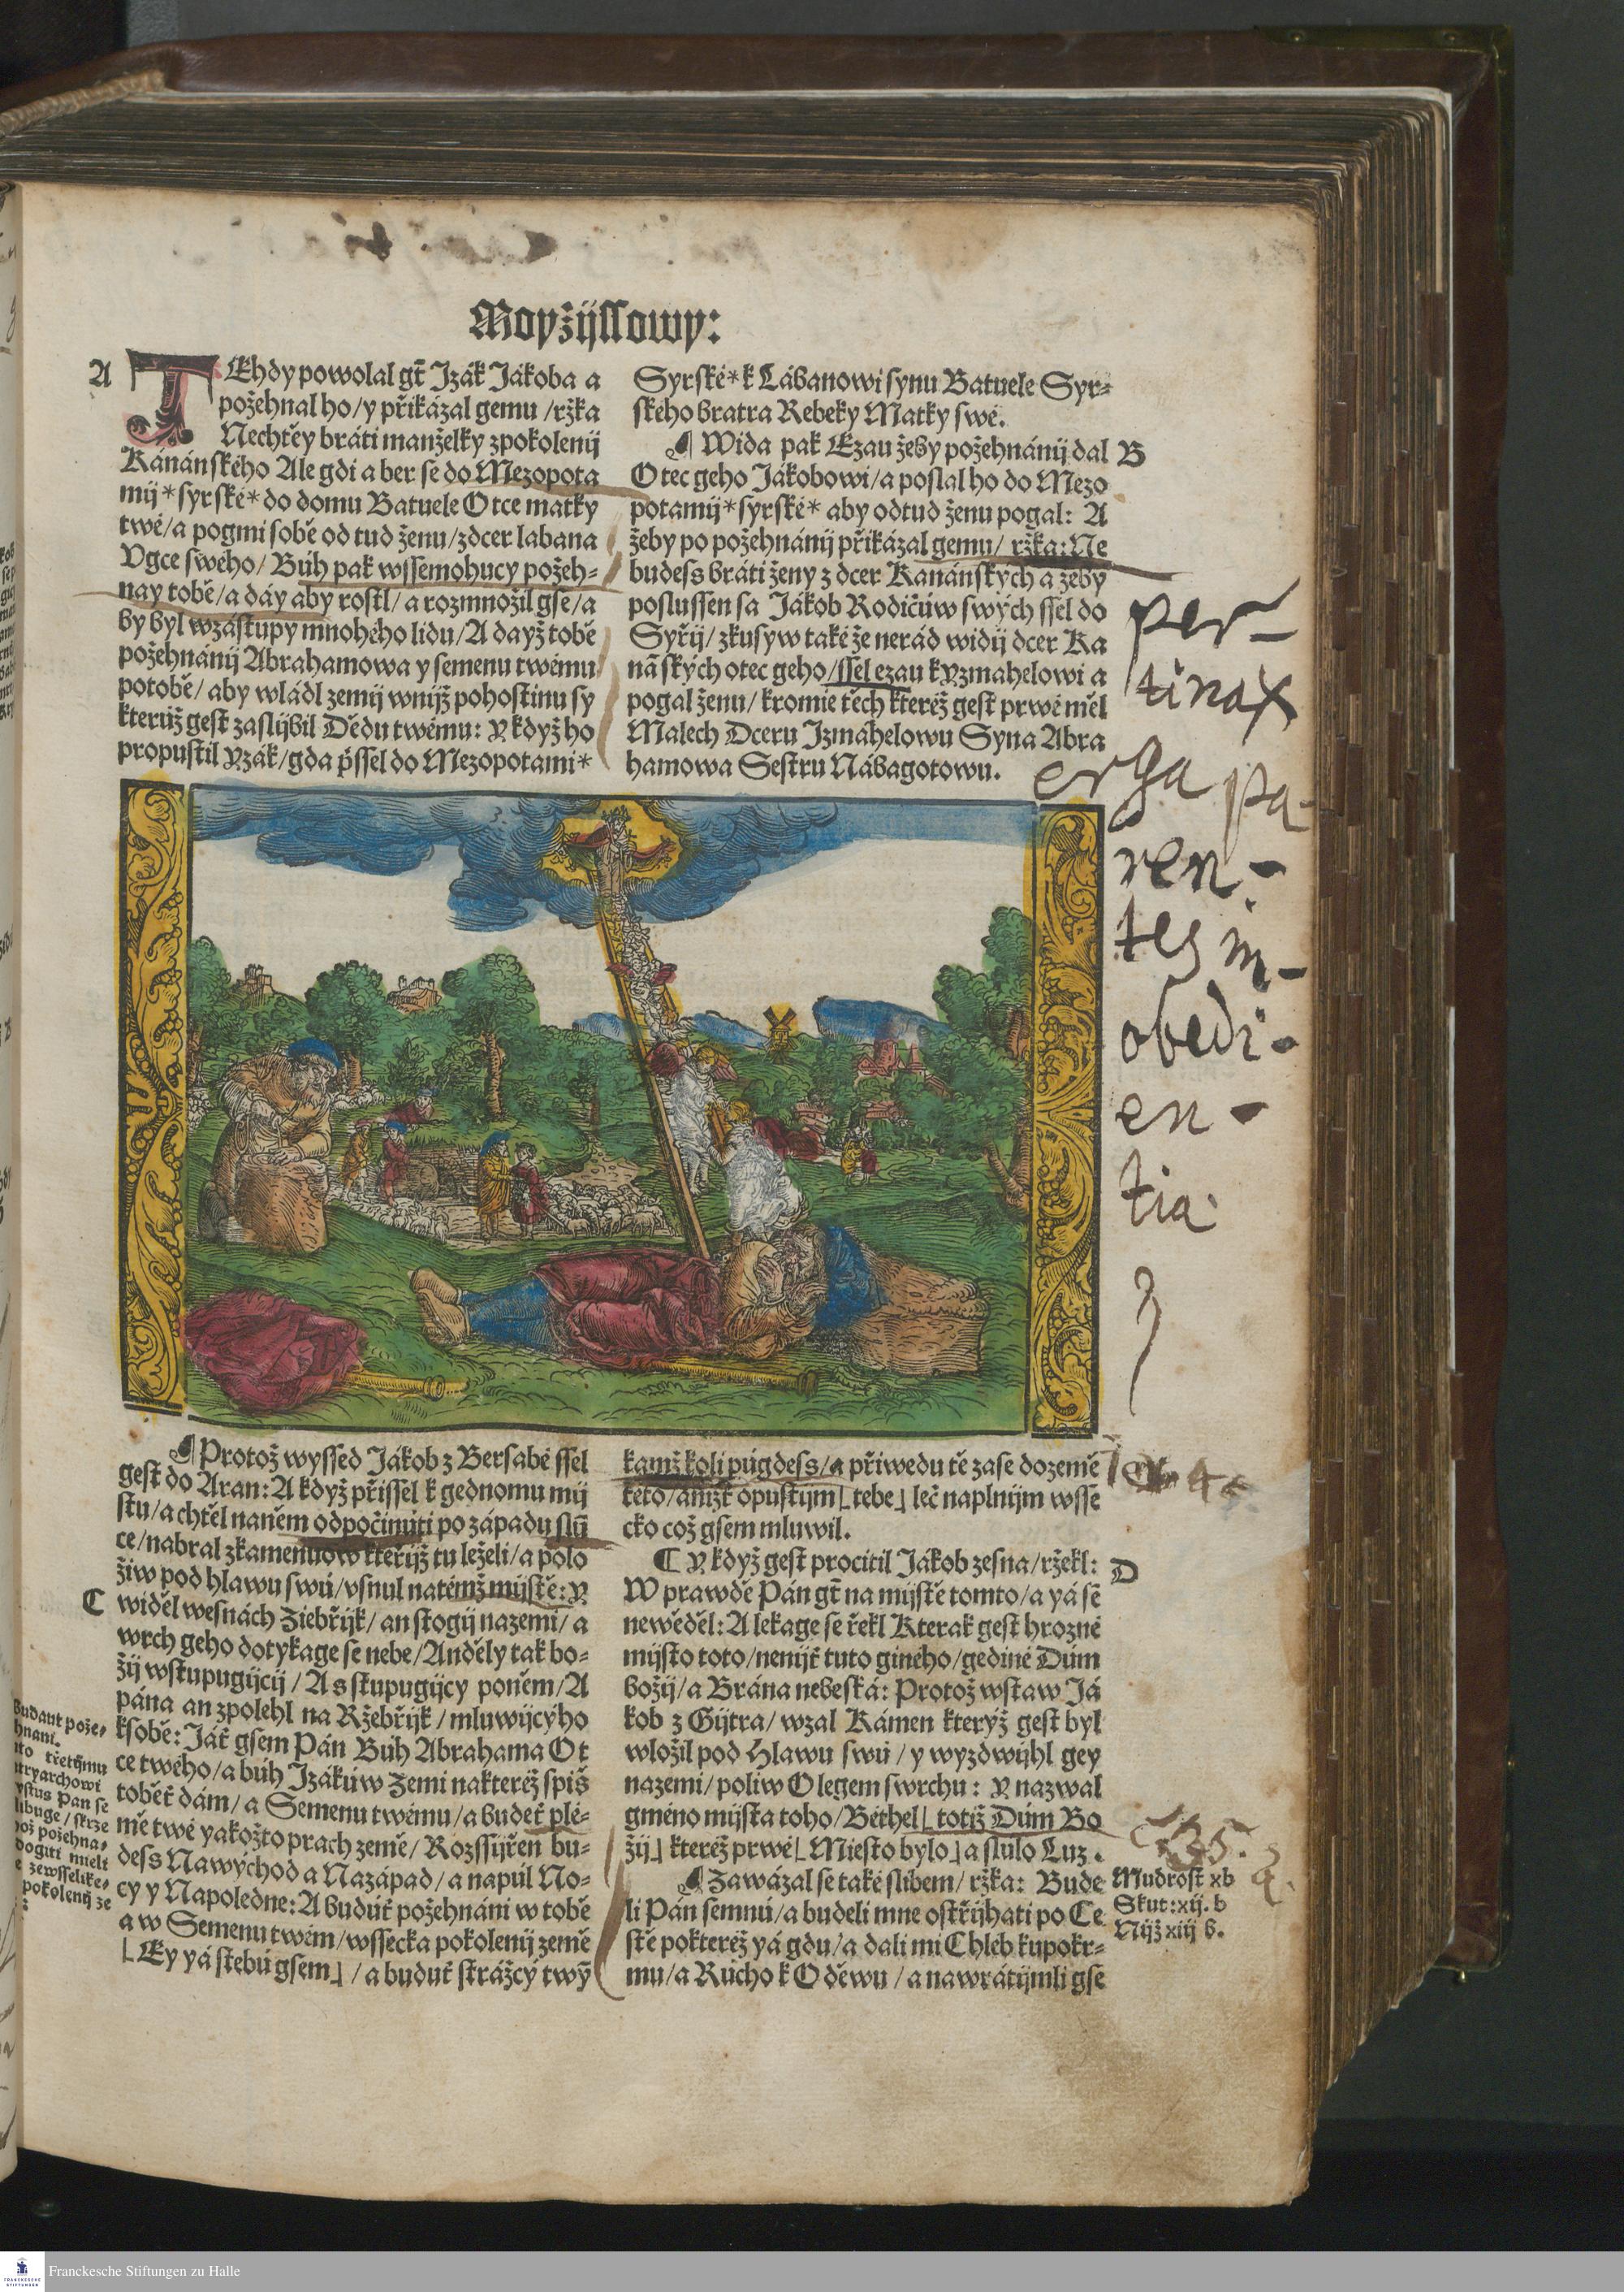 Moyžijssowy:
A
TEhdy powolal gt̃ Izák Jákoba a
požehnal ho/y přikázal gemu /ržka
Nechtěy bráti manželky zpokolenij
Kánánského Ale gdi a ber se do Mezopota
mij*syrské*do domu Batuele Otce matky
twé/a pogmi sobě od tud ženu/zdcer labana
Vgce swého/ Bůh pak wssemohucy požeh-
nay tobě/a dáy aby rostl/a rozmnožil gse/a
by byl wzástupy mnohého lidu/A dayž tobě
požehnánij Abrahamowa y semenu twému
potobě/aby wládl zemij wnijž pohostinu sy
kterúž gest zaslijbil Dědu twému: Y když ho
propustil Yzák/gda p̃ssel do Mezopotami*
Syrské*k Lábanowi synu Batuele Syr-
ského bratra Rebeky Matky swé.
¶ Wida pak Ezau žeby požehnánij dal
B
Otec geho Jákobowi/a poslal ho do Mezo
potamij*syrské* aby odtud ženu pogal: A
žeby po požehnánij přikázal gemu/ ržka: Ne
budess bráti ženy z dcer Kanánských a žeby
poslussen sa Jákob Rodičúw swých ssel do
Syřij/zkusyw také že nerád widij dcer Ka
nãských otec geho/ssel ezau k Yzmahelowi a
pogal ženu/kromie těch kteréž gest prwé měl
Malech Dceru Izmáhelowu Syna Abra
hamowa Sestru Nábagotowu.
per-
tinax
erga pa-
ren-
tes in-
obedi-
en-
tia.
¶ Protož wyssed Jákob z Bersabé ssel
gest do Aran: A když přissel k gednomu mij
stu/a chtěl naněm odpočinúti po západu slũ
ce/nabral zkamenuow kteřijž tu leželi/a polo
žiw pod hlawu swú/vsnul natémž mijstě: Y
C
widěl wesnách Ziebřijk/an stogij nazemi/a
wrch geho dotykage se nebe/Anděly tak bo-
žij wstupugijcij/A sstupugijcy poněm/A
pána an zpolehl na Ržebřijk/mluwijcýho
ksobě: Ját̃ gsem Pán Bůh Abrahama Ot
ce twého/a búh Izákúw Zemi nakteréž spijš
tobět̃ dám/a Semenu twému/a budet̃ plé-
mě twé yakožto prach země/Rozssijřen bu-
dess Nawýchod a Nazápad/a napúl No-
cy y Napoledne: A budút̃ požehnáni w tobě
a w Semenu twém/wssecka pokolenij země
⌊Ey yá stebú gsem⌋/a budut̃ strážcý twý
Budaut pože-
hnani.
třetijmu
pože
požehna-
dogiti mieli
zewsselike-
pokolenij ze
kamžkoli půgdess/a přiwedu tě zase dozemě
této/anižt̃ opustijm⌊tebe⌋leč naplnijm wsse
cko což gsem mluwil.
¶ Y když gest procitil Jákob zesna/ržekl:
D
W prawdě Pán gt̃ na mijstě tomto/a yá sẽ
newěděl: A lekage se řekl Kterak gest hrozné
mijsto toto/nenijt̃ tuto giného/gediné Dům
božij/a Brána nebeská: Protož wstaw Já
kob z Gijtra/wzal Kámen kterýž gest byl
wložil pod Hlawu swú/y wyzdwijhl gey
nazemi/poliw Olegem swrchu: Y nazwal
gméno mijsta toho/Béthel⌊totiž Dům Bo
žij⌋kteréž prwé⌊Miesto bylo⌋a slulo Luz.
¶ Zawázal se také slibem/ržka: Bude
li Pán semnú/a budeli mne ostřijhati po Ce
stě pokteréž yá gdu/a dali mi Chléb kupokr-
mu/a Růcho k Oděwu/a nawrátijmli gse
Mudrost xb
Skut: xij. b
Nijž xiij b.
Franckesche Stiftungen zu Halle